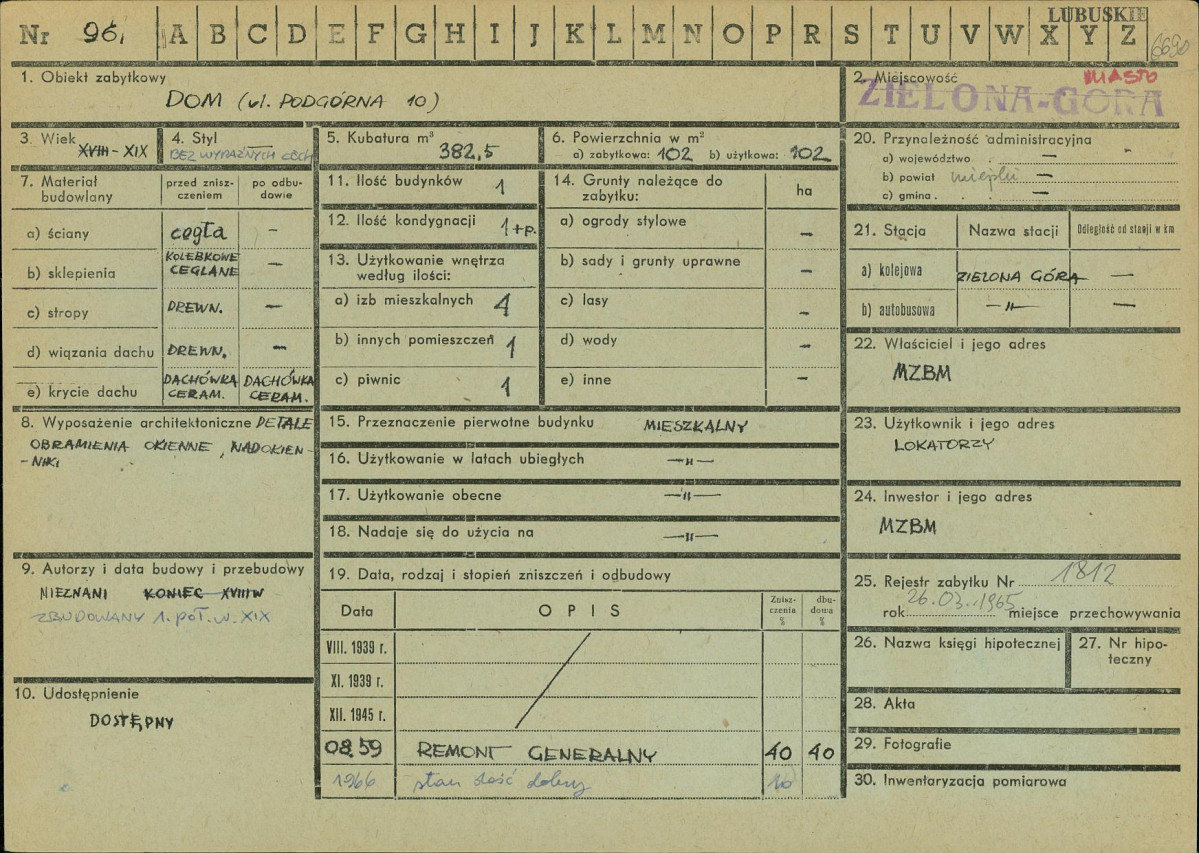 LUBUSKIE
Nr 96, A B C D E F G H I J K L M N O P R S T U V W X Y Z
6690
1. Obiekt zabytkowy
DOM (ul. PODGÓRNA 10)
2. Miejscowość MIASTO
ZIELONA-GÓRA
3. Wiek
XVIII - XIX
4. Styl
BEZ WYRAŹNYCH CECH
5. Kubatura m³
382,5
6. Powierzchnia w m²
a) zabytkowa: 102 b) użytkowa: 102
7. Materiał budowlany
przed znisz-
czeniem
po odbu-
dowie
a) ściany cegła —
b) sklepienia KOLEBKOWE CEGLANE —
c) stropy DREWN. —
d) wiązania dachu DREWN. —
e) krycie dachu DACHÓWKA CERAM. DACHÓWKA CERAM.
8. Wyposażenie architektoniczne DETALE
OBRAMIENIA OKIENNE, NADOKIEN-
-NIKI
9. Autorzy i data budowy i przebudowy
NIEZNANI KONIEC XVIII W
ZBUDOWANY 1. POŁ. W. XIX
10. Udostępnienie
DOSTĘPNY
11. Ilość budynków 1
12. Ilość kondygnacji 1+p.
13. Użytkowanie wnętrza
według ilości:
a) izb mieszkalnych 4
b) innych pomieszczeń 1
c) piwnic 1
14. Grunty należące do
zabytku: ha
a) ogrody stylowe —
b) sady i grunty uprawne —
c) lasy —
d) wody —
e) inne —
15. Przeznaczenie pierwotne budynku MIESZKALNY
16. Użytkowanie w latach ubiegłych —"—
17. Użytkowanie obecne —"—
18. Nadaje się do użycia na —"—
19. Data, rodzaj i stopień zniszczeń i odbudowy
Data OPIS Znisz-
czenia
%
dbu-
dowa
%
VIII. 1939 r.
XI. 1939 r.
XII. 1945 r.
08.59 REMONT GENERALNY 40 40
1966 stan dość dobry 10
20. Przynależność administracyjna
a) województwo . —
b) powiat miejski —
c) gmina . —
21. Stacja Nazwa stacji Odległość od stacji w km
a) kolejowa ZIELONA GÓRA —
b) autobusowa —"— —
22. Właściciel i jego adres
MZBM
23. Użytkownik i jego adres
LOKATORZY
24. Inwestor i jego adres
MZBM
25. Rejestr zabytku Nr 1812
rok 26.03.1965 miejsce przechowywania
26. Nazwa księgi hipotecznej
27. Nr hipo-
teczny
28. Akta
29. Fotografie
30. Inwentaryzacja pomiarowa